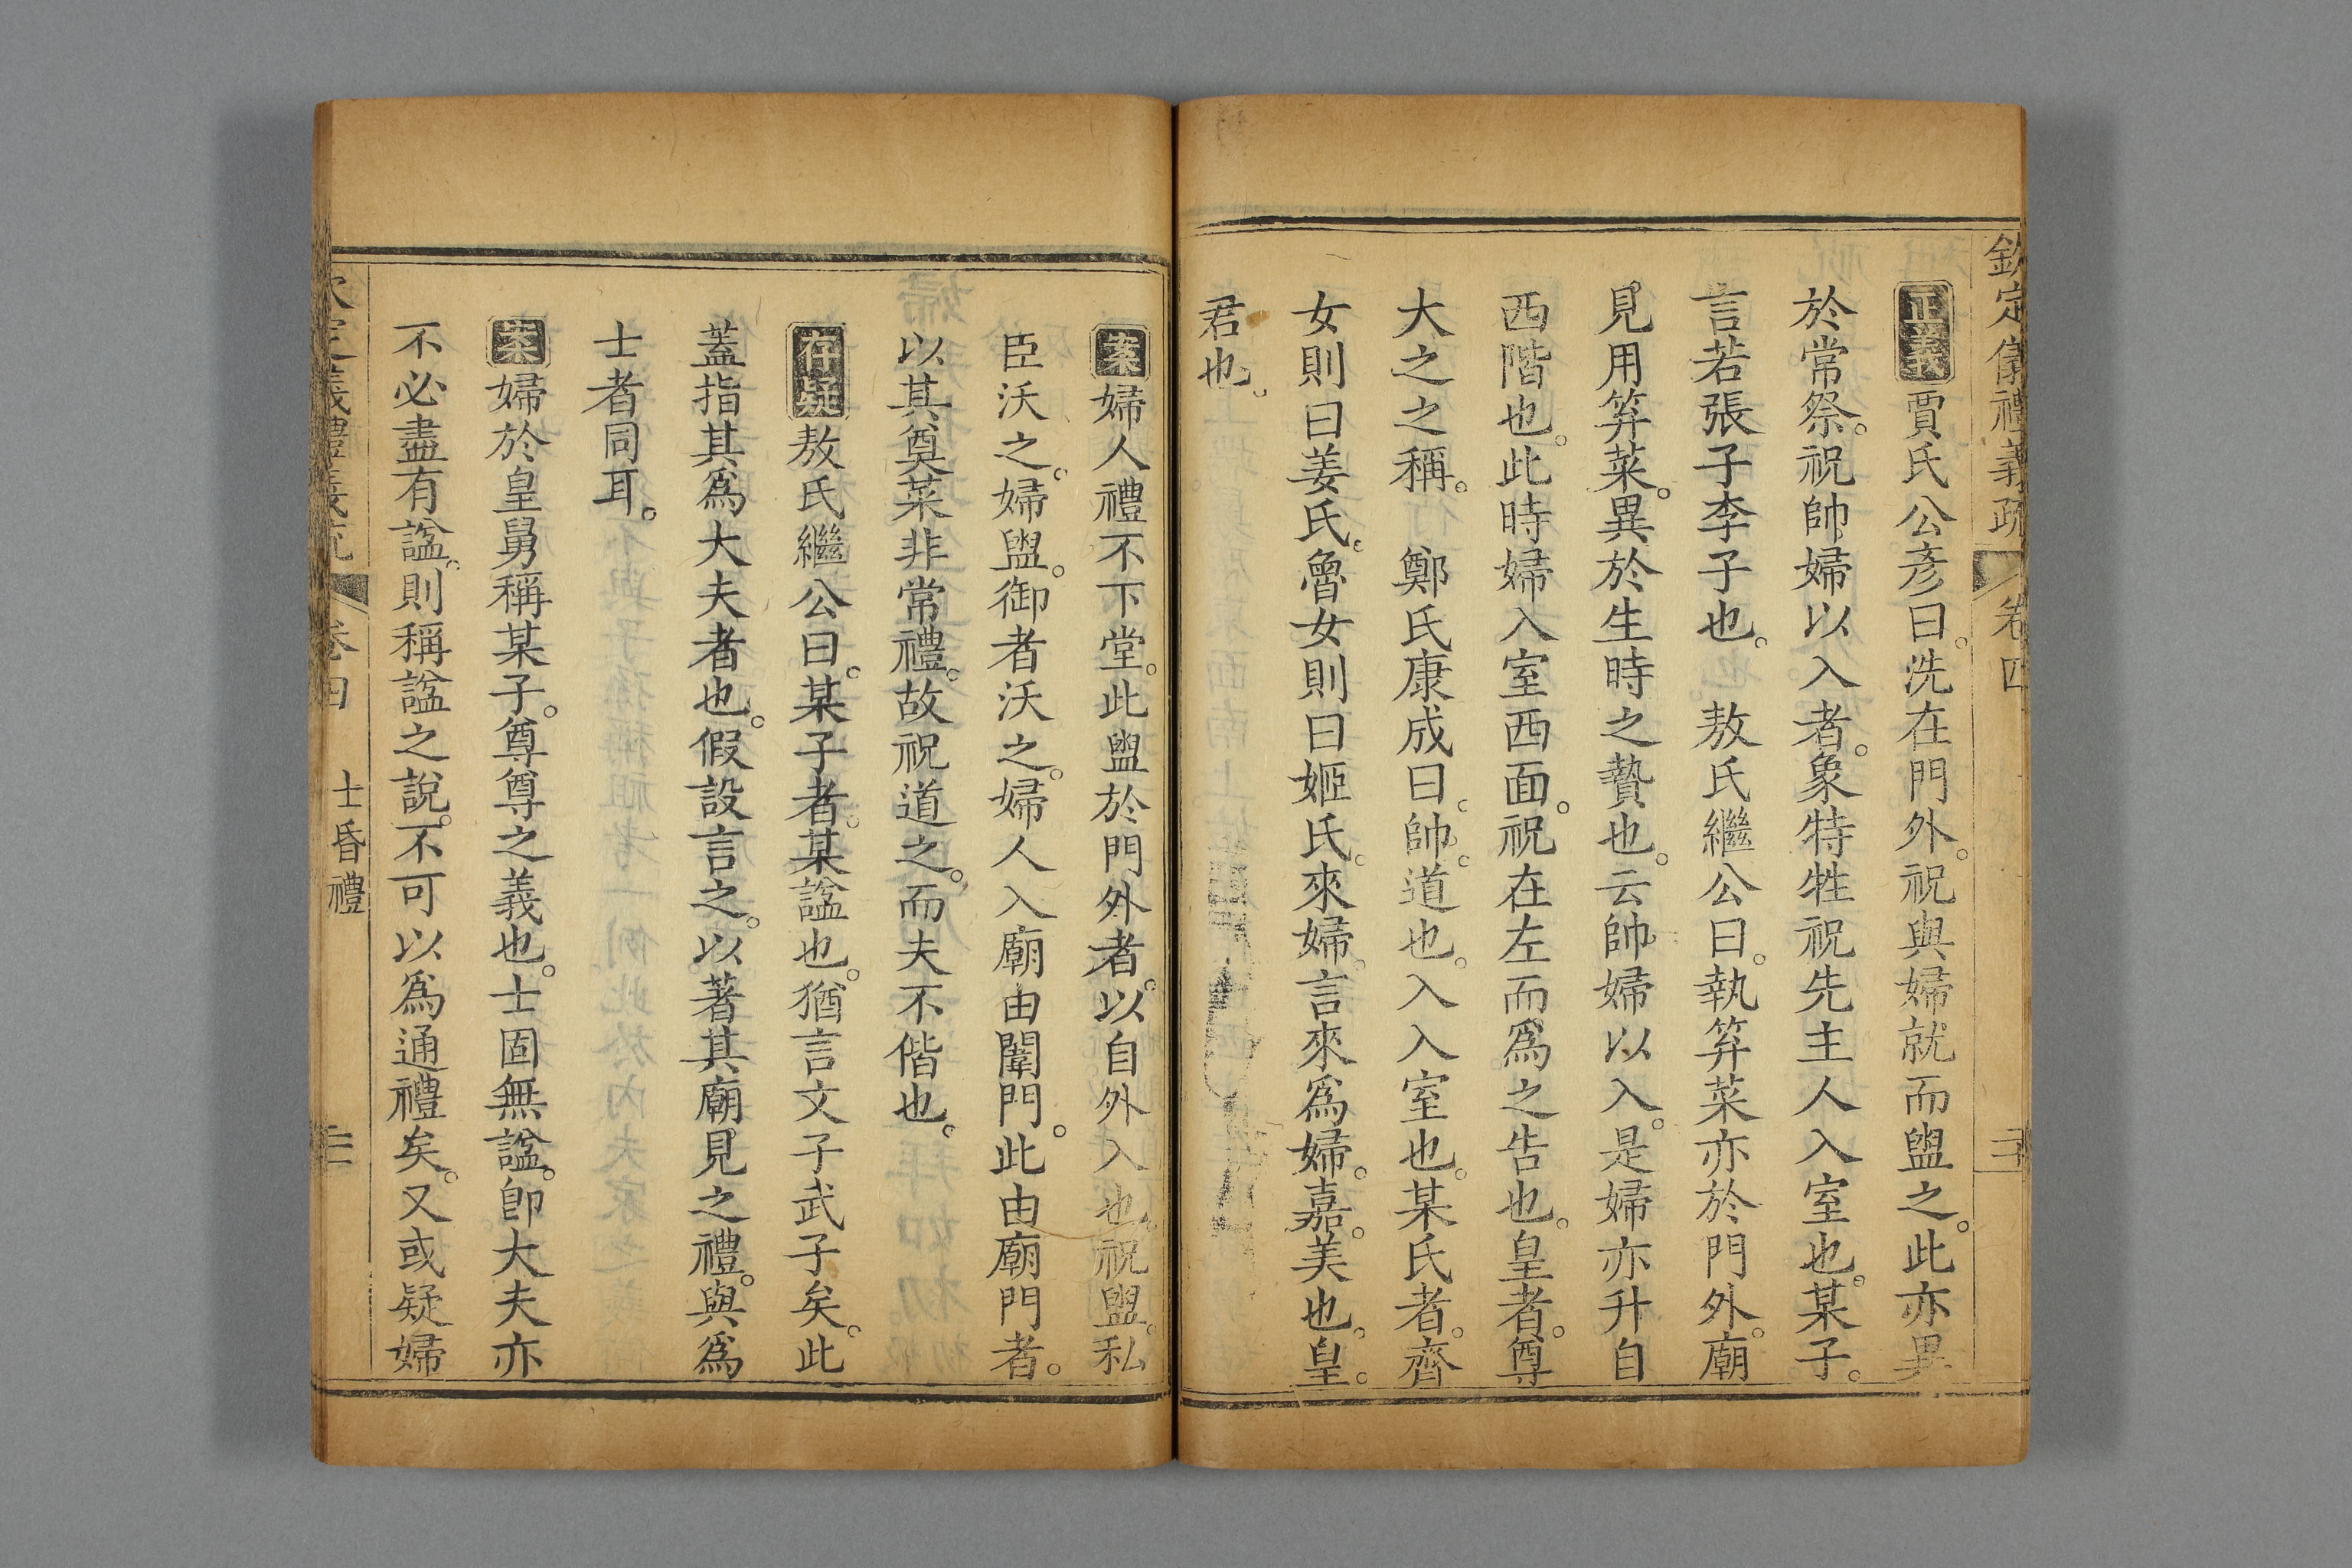 欽定儀禮義疏 卷四
正義賈氏公彦曰。洗在門外。祝與婦就而盥之。此亦異
於常祭。祝帥婦以入者。象特牲祝先主人入室也。某子。
言若張子李子也。 敖氏繼公曰。執笲菜亦於門外。廟
見用笲菜。異於生時之贄也。云帥婦以入。是婦亦升自
西階也。此時婦入室西面。祝在左而爲之告也。皇者。尊
大之之稱。 鄭氏康成曰。帥。道也。入入室也。某氏者。齊
女則曰姜氏。魯女則曰姬氏。來婦。言來爲婦。嘉。美也。皇。
君也。
案婦人禮不下堂。此盥於門外者。以自外入也。祝盥。私
臣沃之。婦盥。御者沃之。婦人入廟由闈門。此由廟門者。
以其奠菜非常禮。故祝道之。而夫不偕也。
存疑敖氏繼公曰。某子者。某諡也。猶言文子武子矣。此
蓋指其爲大夫者也。假設言之。以著其廟見之禮。與爲
士者同耳。
案婦於皇舅稱某子。尊尊之義也。士固無諡。卽大夫亦
不必盡有諡。則稱諡之說。不可以爲通禮矣。又或疑婦
士昏禮